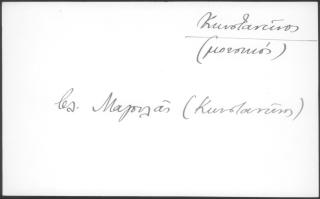 Κωνσταντῖνος
(μουσικός)
βλ. Μαγουλᾶς (Κωνσταντῖνος)